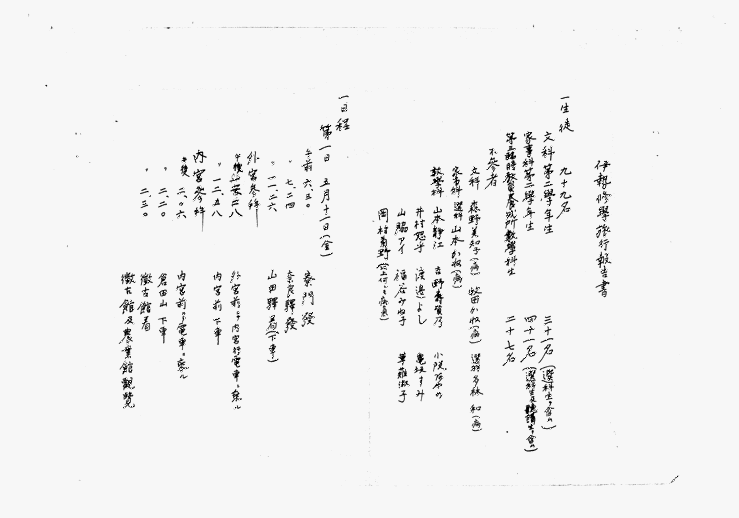 伊勢修學旅行報告書
一生徒 九十九名
文科第二學年生 三十一名(選科生ヲ含ム)
家事科第二學年生 四十一名(選科生及聽講生ヲ含ム)
第五臨時教員養成所數學科生 二十七名
不參者
文科 森野美知子(病)
家事科 選科 山本
數學科 山本靜江 吉野壽賀乃
井村 渡邊よし 龜坂すみ
山脇アイ 淑子
岡村菊野(以上何レモ病氣)
一日程
第一日 五月十一日(金)
午前 六、三〇 寮門發
〃 七、二四 奈良驛發
〃 一一、二六 山田驛着(下車)
外宮參拜
午後 外宮前ヨリ内宮行電車ニ乘ル
〃 一二、五八 内宮前下車
内宮參拜
午後 二、〇六 内宮前ヨリ電車ニ乘ル
〃 二、二〇 倉田山下車
〃 二、三〇 徵古館着
徵古館及農業館觀覽